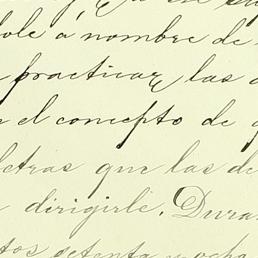 ole a nombre de
practicar las
el concepto de
letras que las de
dirigirle. Dura
tos setenta y ocho